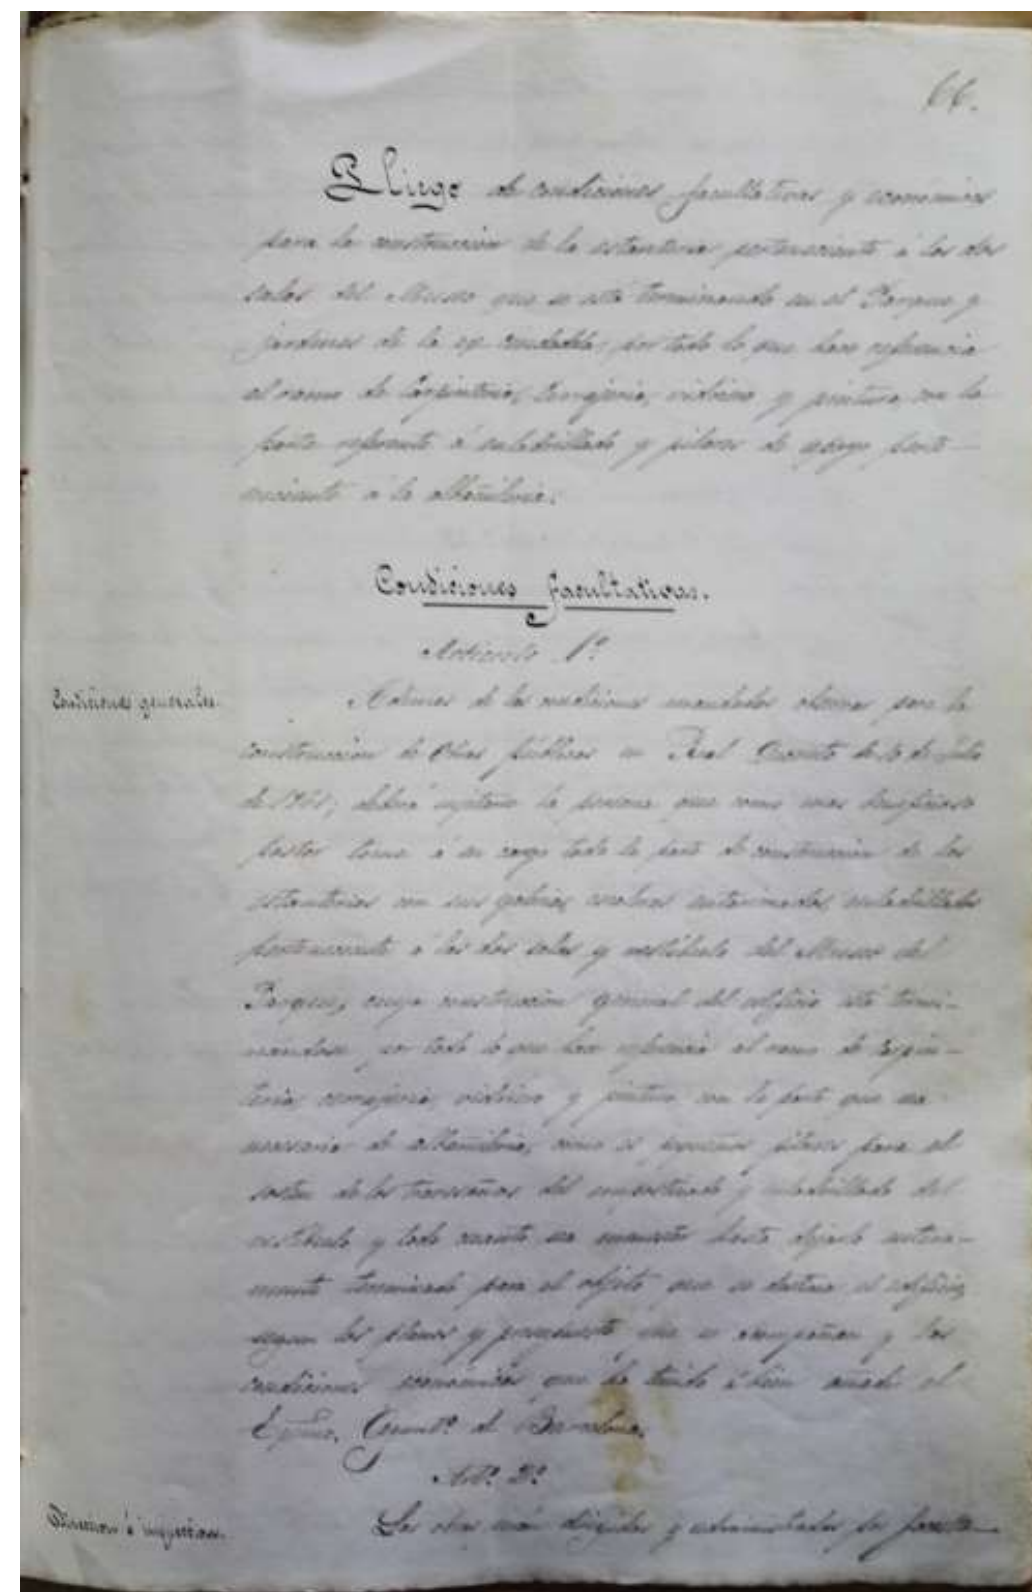 66.
Pliego de condiciones facultativas y económicas
para la construcción de la estanteria perteneciente á las dos
salas del Museo que se está terminando en el Parque y
jardines de la ex-ciudadela, por todo lo que hace referencia
al ramo de Carpinteria, Cerrajeria, vidriero y pintura, con la
parte referente á enladrillado y pilares de apoyo perte-
neciente á la albañileria.
Condiciones facultativas.
Articulo 1º
Condiciones generales.
Ademas de las condiciones mandadas observar para la
construccion de Obras públicas en Real Decreto de 10 de Julio
de 1861, deberá sujetarse la persona que como mas beneficioso
postor tome á su cargo toda la parte de construccion de las
estanterias con sus galerias, escaleras, enladrillados
perteneciente á las dos salas y vestíbulo del Museo del
Parque, cuya construccion general del edificio está termi-
nandose por todo lo que hace referencia al ramo de Carpin-
teria cerrajeria vidriero y pintura con la parte que sea
necesaria de albañileria, como es pequeños pilares para el
sosten de los travesaños del empostizado y enladrillado del
vestíbulo y todo cuanto sea menester hasta dejarlo entera-
mente terminado para el objeto que se destina el edificio,
segun los planos y presupuesto que se acompañan y las
condiciones económicas que ha tenido á bien añadir el
Excmo. Ayuntº de Barcelona.
Artº 2º
Direccion é inspeccion.
Las obras serán dirigidas y administradas por